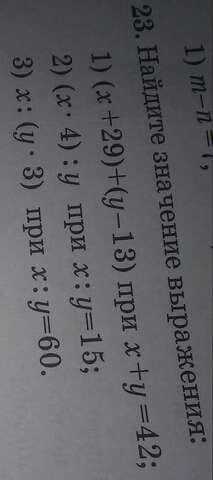 1) m–n=7,
23. Найдите значение выражения:
1) (x+29)+(y–13) при x+y=42;
2) (x·4):y при x:y=15;
3) x:(y·3) при x:y=60.